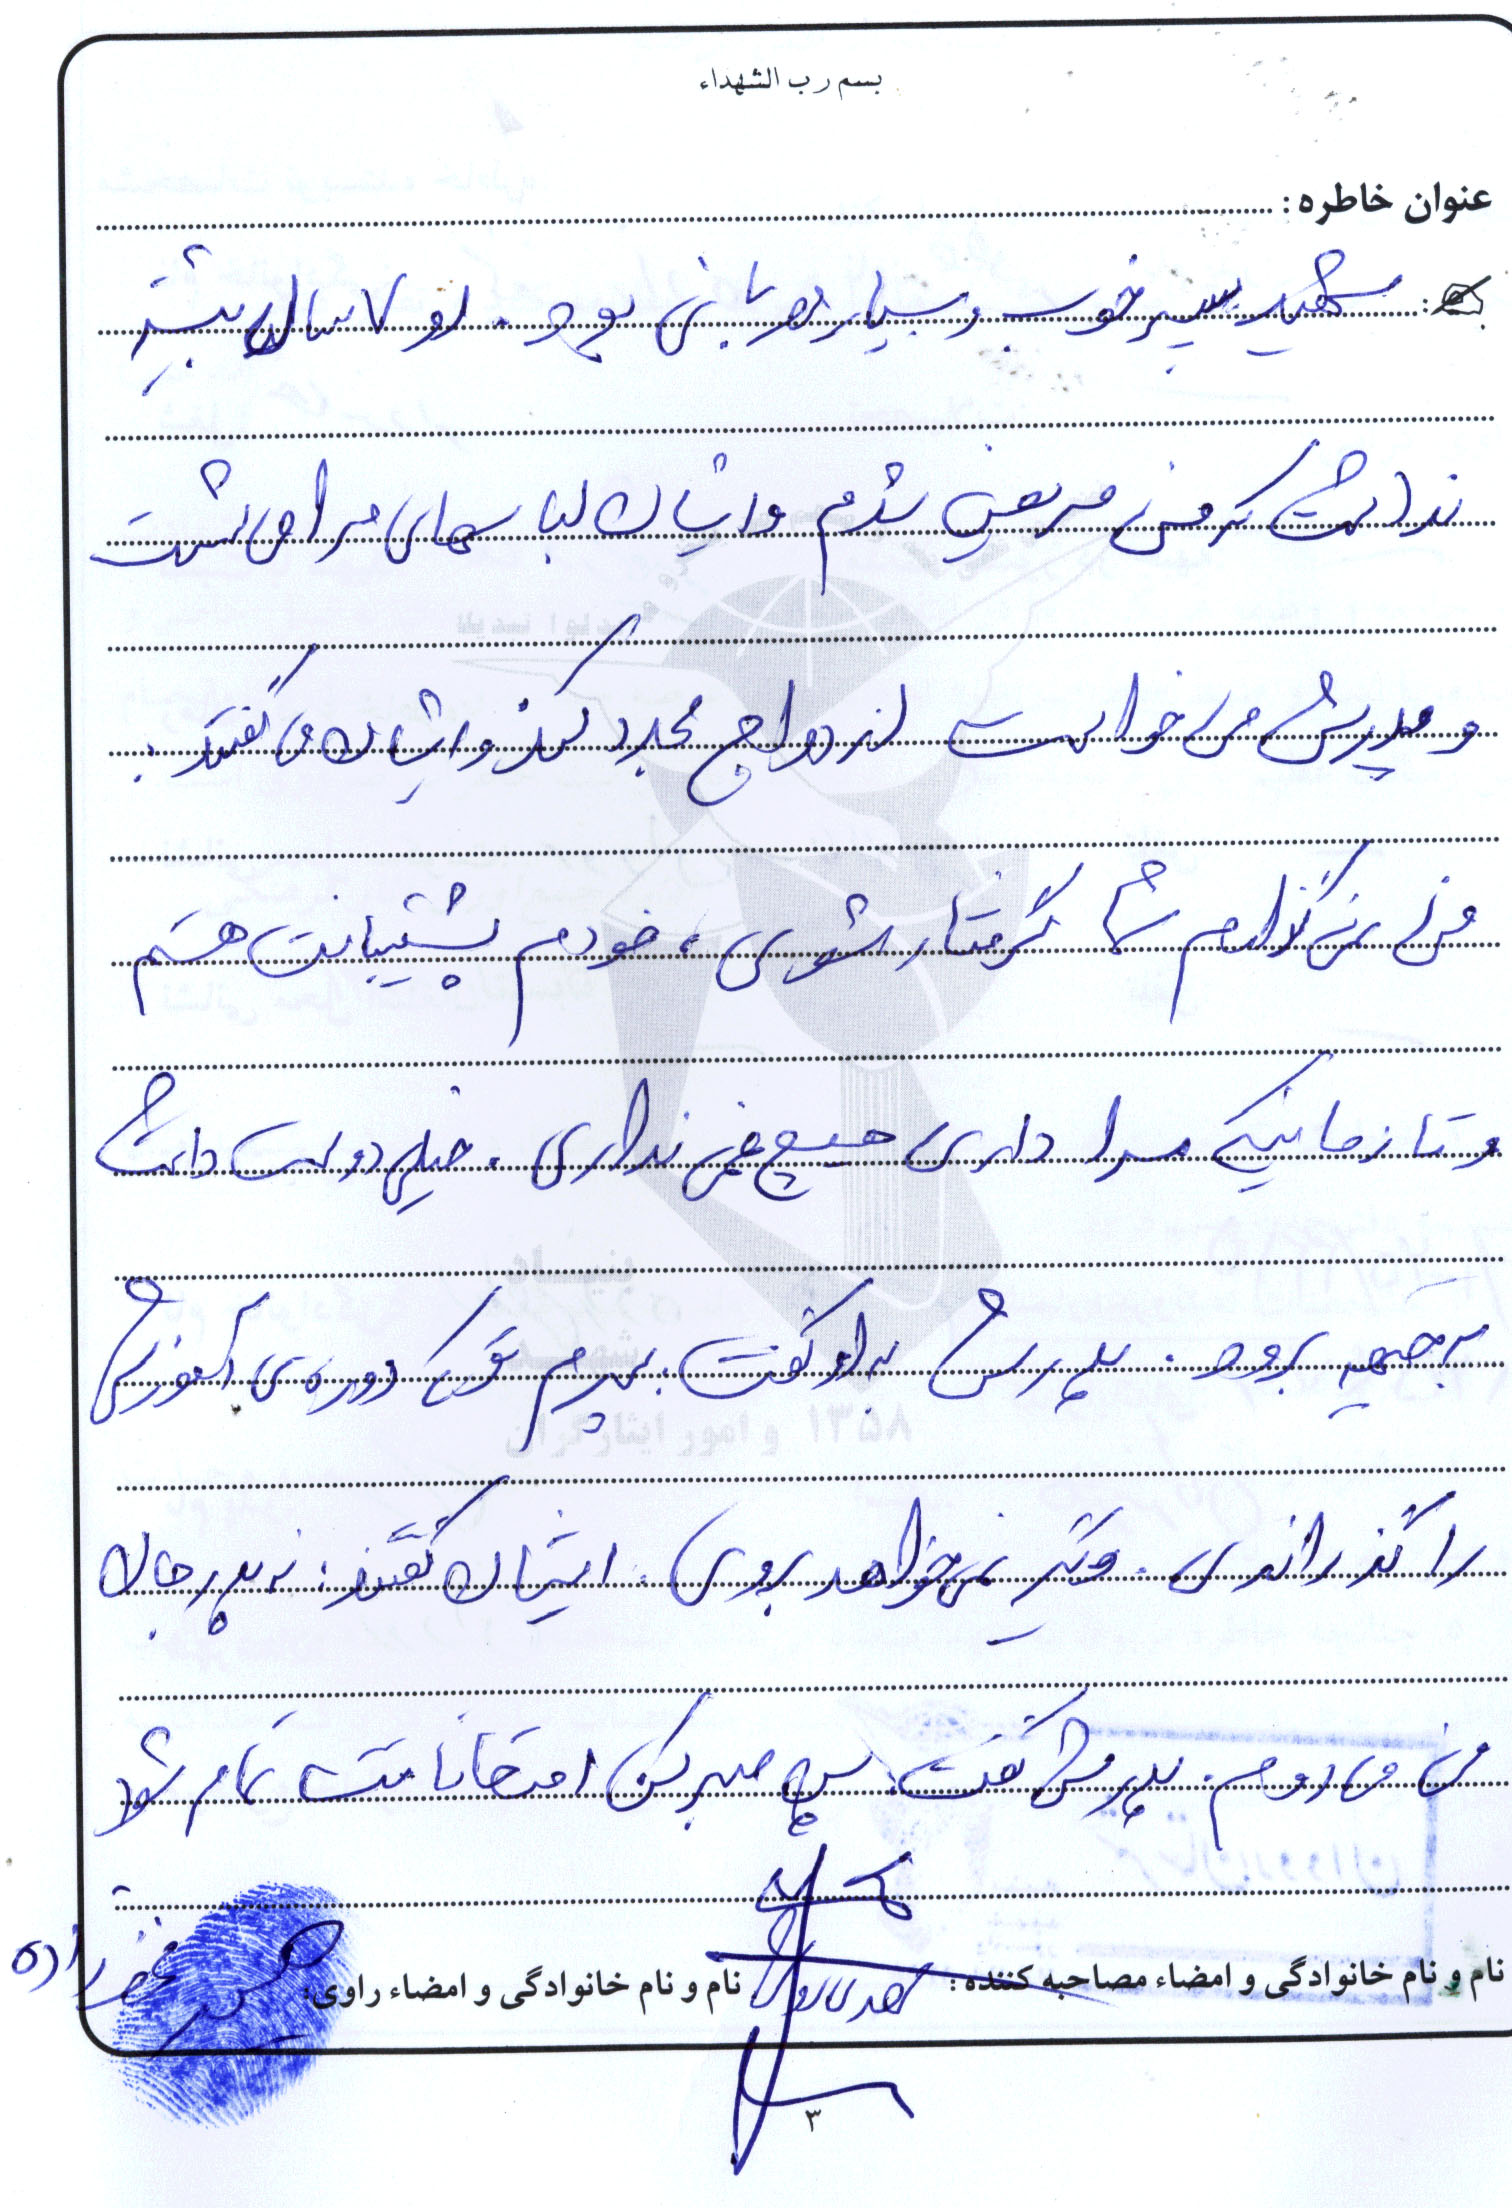 بسم رب الشهداء
عنوان خاطره :
شهید پسر خوب و بسیار مهربانی بود . او ۷ سال بیشتر
نداشت که من مریض شدم و ایشان لباسهای مرا می شست
و پدرش می خواست ازدواج مجدد کند و ایشان می گفتند :
من نمی گذارم شما گرفتار شوی ، خودم پشتیبانت هستم
و تا زمانیکه مرا داری هیچ غمی نداری . خیلی دوست داشت
به جبهه برود . پدرش به او گفت : پسرم تو یک دوره ی آموزشی
را گذراندی . دیگر نمی خواهد بروی . ایشان گفتند : نه پدر جان
من می روم . پدرش گفت پس صبر کن امتحانات تمام شود
نام و نام خانوادگی و امضاء مصاحبه کننده :
نام و نام خانوادگی و امضاء راوی:
۳